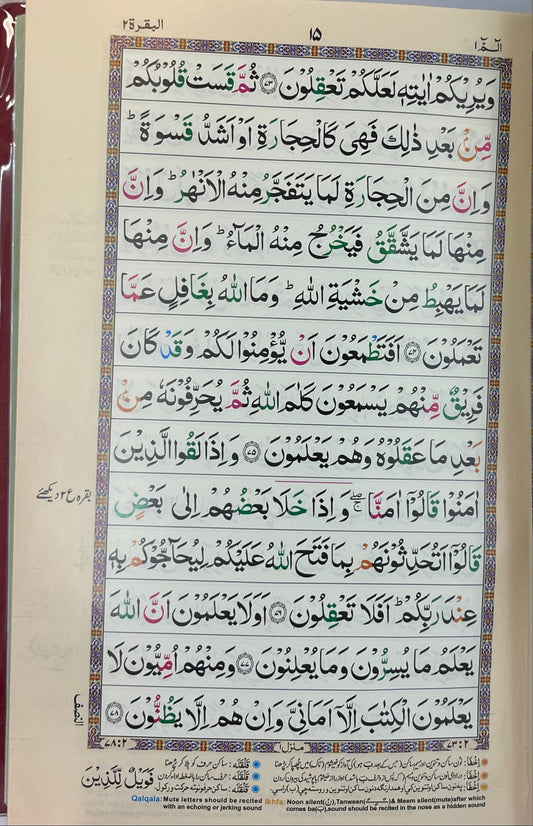 الٓمّٓ ١
١٥
البقرة ٢
وَيُرِيْكُمْ اٰيٰتِهٖ لَعَلَّكُمْ تَعْقِلُوْنَ ﴿٧٣﴾ ثُمَّ قَسَتْ قُلُوْبُكُمْ
مِّنْۢ بَعْدِ ذٰلِكَ فَهِيَ كَالْحِجَارَةِ اَوْ اَشَدُّ قَسْوَةً ؕ
وَاِنَّ مِنَ الْحِجَارَةِ لَمَا يَتَفَجَّرُ مِنْهُ الْاَنْهٰرُ ؕ وَاِنَّ
مِنْهَا لَمَا يَشَّقَّقُ فَيَخْرُجُ مِنْهُ الْمَآءُ ؕ وَاِنَّ مِنْهَا
لَمَا يَهْبِطُ مِنْ خَشْيَةِ اللّٰهِ ؕ وَمَا اللّٰهُ بِغَافِلٍ عَمَّا
تَعْمَلُوْنَ ﴿٧٤﴾ اَفَتَطْمَعُوْنَ اَنْ يُّؤْمِنُوْا لَكُمْ وَقَدْ كَانَ
فَرِيْقٌ مِّنْهُمْ يَسْمَعُوْنَ كَلٰمَ اللّٰهِ ثُمَّ يُحَرِّفُوْنَهٗ مِنْۢ
بَعْدِ مَا عَقَلُوْهُ وَهُمْ يَعْلَمُوْنَ ﴿٧٥﴾ وَاِذَا لَقُوا الَّذِيْنَ
اٰمَنُوْا قَالُوْٓا اٰمَنَّا ۖۚ وَاِذَا خَلَا بَعْضُهُمْ اِلٰى بَعْضٍ
بقرہ ع ٢ دیکھئے
قَالُوْٓا اَتُحَدِّثُوْنَهُمْ بِمَا فَتَحَ اللّٰهُ عَلَيْكُمْ لِيُحَآجُّوْكُمْ بِهٖ
عِنْدَ رَبِّكُمْ ؕ اَفَلَا تَعْقِلُوْنَ ﴿٧٦﴾ اَوَلَا يَعْلَمُوْنَ اَنَّ اللّٰهَ
يَعْلَمُ مَا يُسِرُّوْنَ وَمَا يُعْلِنُوْنَ ﴿٧٧﴾ وَمِنْهُمْ اُمِّيُّوْنَ لَا
يَعْلَمُوْنَ الْكِتٰبَ اِلَّآ اَمَانِيَّ وَاِنْ هُمْ اِلَّا يَظُنُّوْنَ ﴿٧٨﴾
النصف
٧٣:٢
منزل ١
٧٨:٢
فَوَيْلٌ لِّلَّذِيْنَ
Qalqala: Mute letters should be recited with an echoing or jerking sound
Ikhfa: Noon silent(نْ),Tanween(ـًـٍـٌ)& Meem silent(مْ)after which comes ba(ب),sound should be recited in the nose as a hidden sound